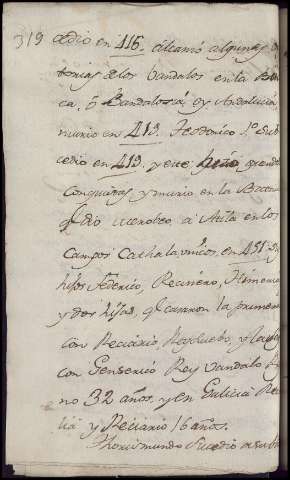 319 cedio en 416. alcanzó algunas vi
torias de los Vandalos en la Beti
ca, ó Vandalozia, oy Andalucia
murio en 419. Teodorico 1º. Suc
cedio en 419. y este hizo grandes
Conquistas y murio en la Batalla
q.e dio meroveo a Atila en los
Campos Cathalaunicos, en 451. Sus
hijos Federico, Recimero, Himerico
y dos hijas, q.e casaron la primera
con Reciario, Rey suebo, y la otra
con Genserico Rey Vandalo Rey
no 32 años, y en Galicia Re
y Reciario 16 años.
Thorismundo Sucedio a su